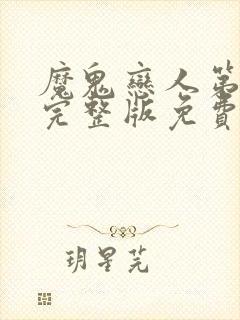 魔鬼戀人第
完整版免費
玥星芫